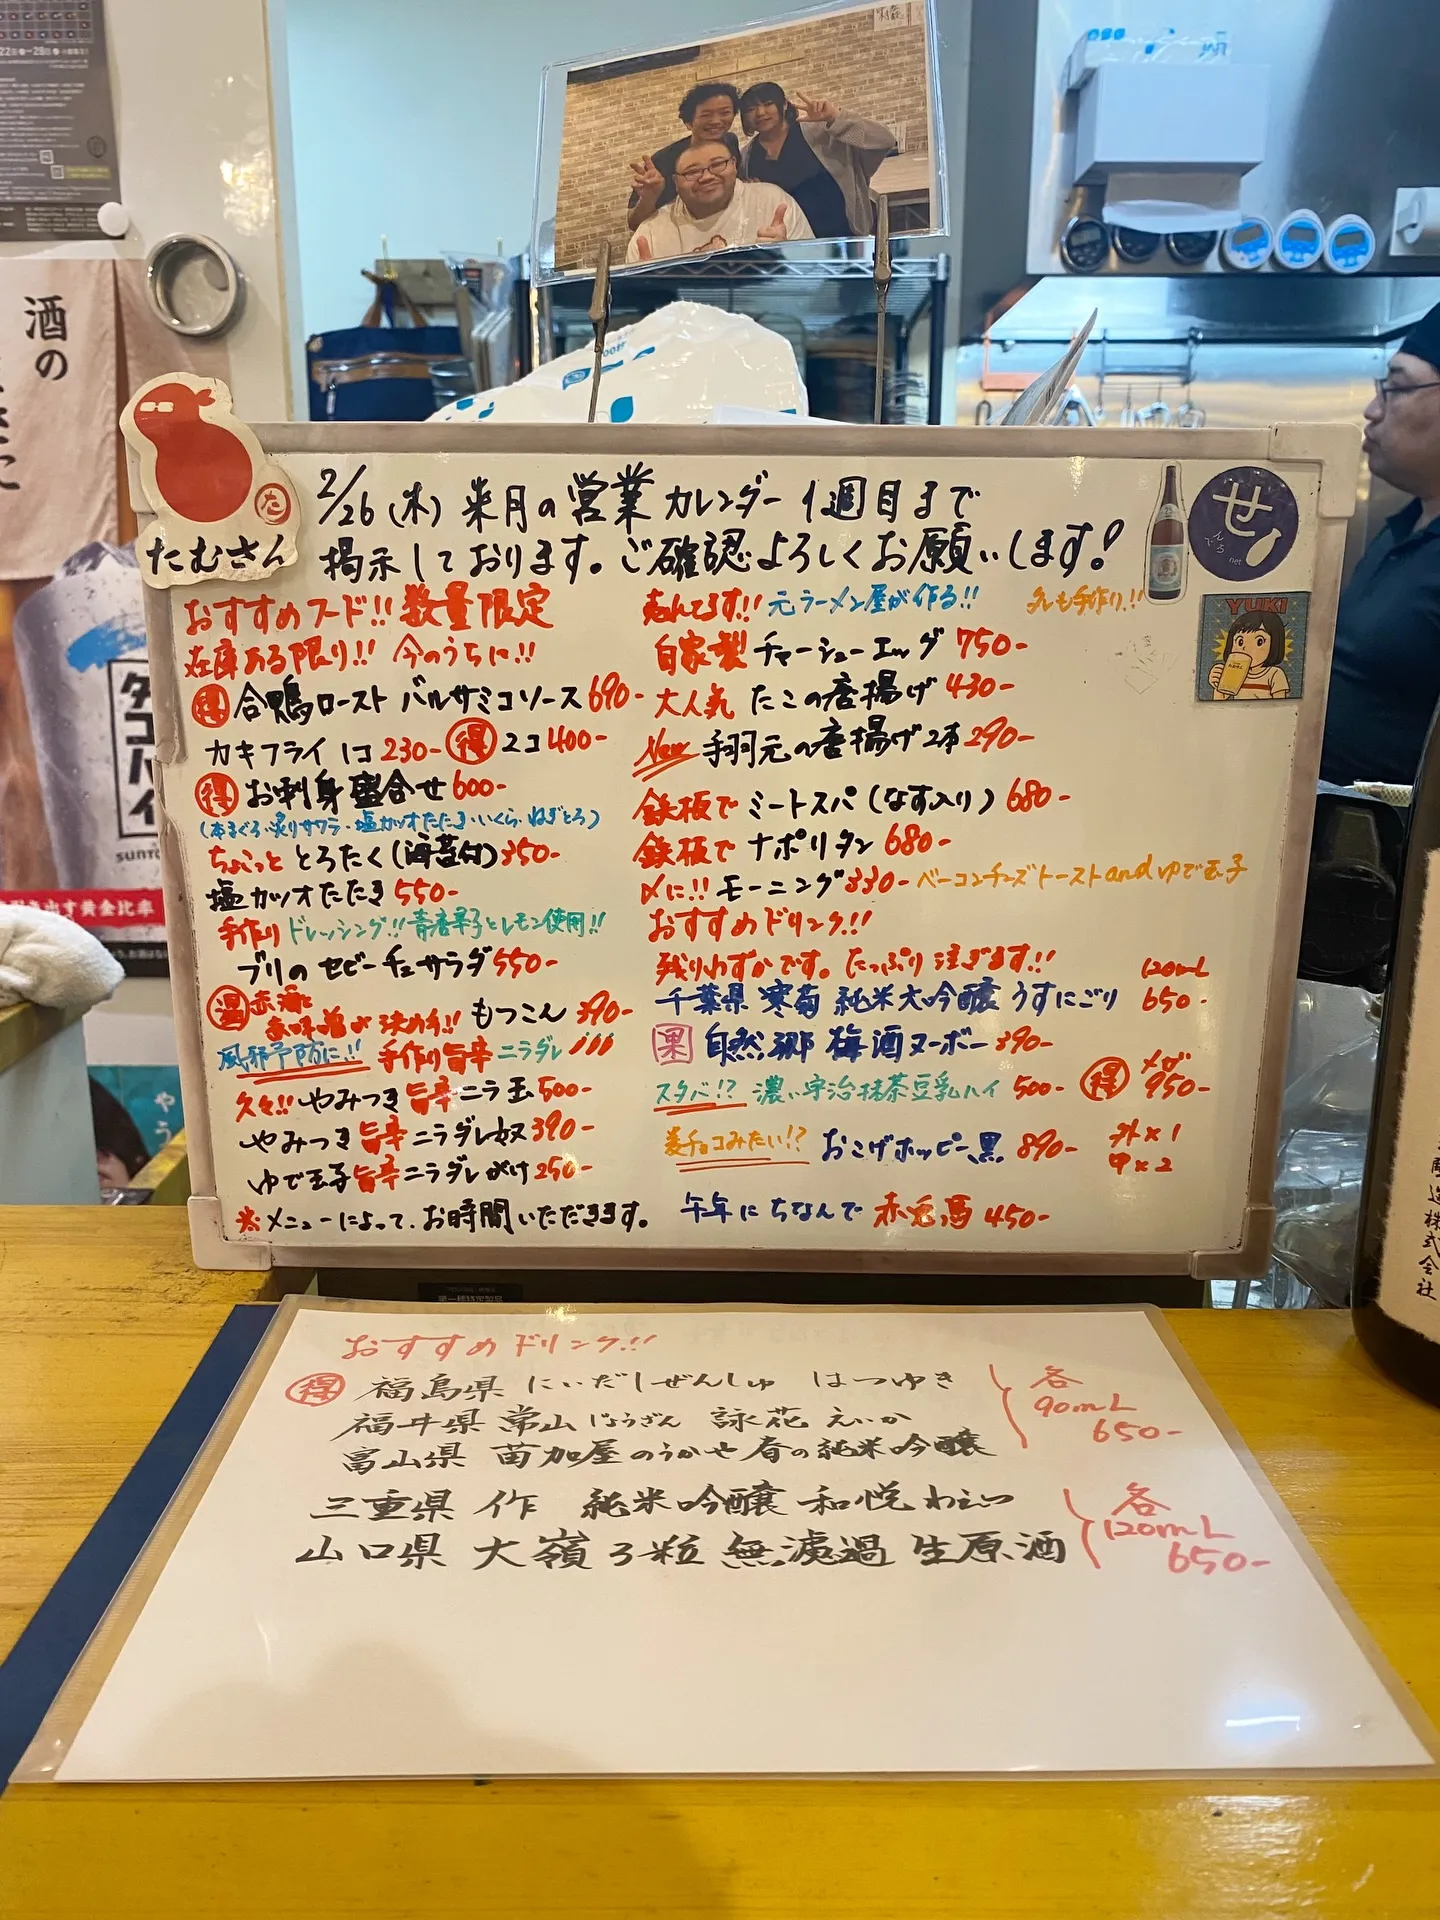 酒の
たむさん
た
2/26(木) 来月の営業カレンダー1週目まで
掲示しております。ご確認よろしくお願いします!
せ
net
YUKI
おすすめフード!! 数量限定
在庫ある限り!! 今のうちに!!
得 合鴨ロースト バルサミコソース 690-
カキフライ 1コ 230- 得 2コ 400-
得 お刺身盛合せ 600-
(本まぐろ・炙りサワラ・塩カツオたたき・いくら・ねぎとろ)
ちょこっと とろたく(海苔付) 350-
塩カツオたたき 550-
手作りドレッシング!! 青唐辛子とレモン使用!!
ブリのセビーチェサラダ 550-
温 赤酒と
麦味噌が決め手!! もつこん 390-
風邪予防に!! 手作り旨辛ニラダレ
久々!! やみつき旨辛ニラ玉 500-
やみつき旨辛ニラダレ奴 390-
ゆで玉子旨辛ニラダレがけ 250-
※メニューによって、お時間いただきます。
売れてます!! 元ラーメン屋が作る!! タレも手作り!!
自家製 チャーシューエッグ 750-
大人気 たこの唐揚げ 430-
New 手羽元の唐揚げ2本 290-
鉄板で ミートスパ(なす入り) 680-
鉄板で ナポリタン 680-
〆に!! モーニング 330- ベーコンチーズトーストandゆで玉子
おすすめドリンク!!
残りわずかです。たっぷり注ぎます!!
千葉県 寒菊 純米大吟醸 うすにごり 120mL 650-
果 自然郷 梅酒ヌーボー 390-
スタバ!? 濃い宇治抹茶豆乳ハイ 500- 得 メガ 950-
麦チョコみたい!? おこげホッピー黒 890- 外×1 中×2
午年にちなんで 赤兎馬 450-
おすすめドリンク!!
得 福島県 にいだしぜんしゅ はつゆき
福井県 常山 じょうざん 詠花 えいか
富山県 苗加屋 のうかや 春の純米吟醸
各 90mL 650-
三重県 作 純米吟醸 和悦 わえつ
山口県 大嶺3粒 無濾過 生原酒
各 120mL 650-
タコハイ
出す黄金比率
株式会社